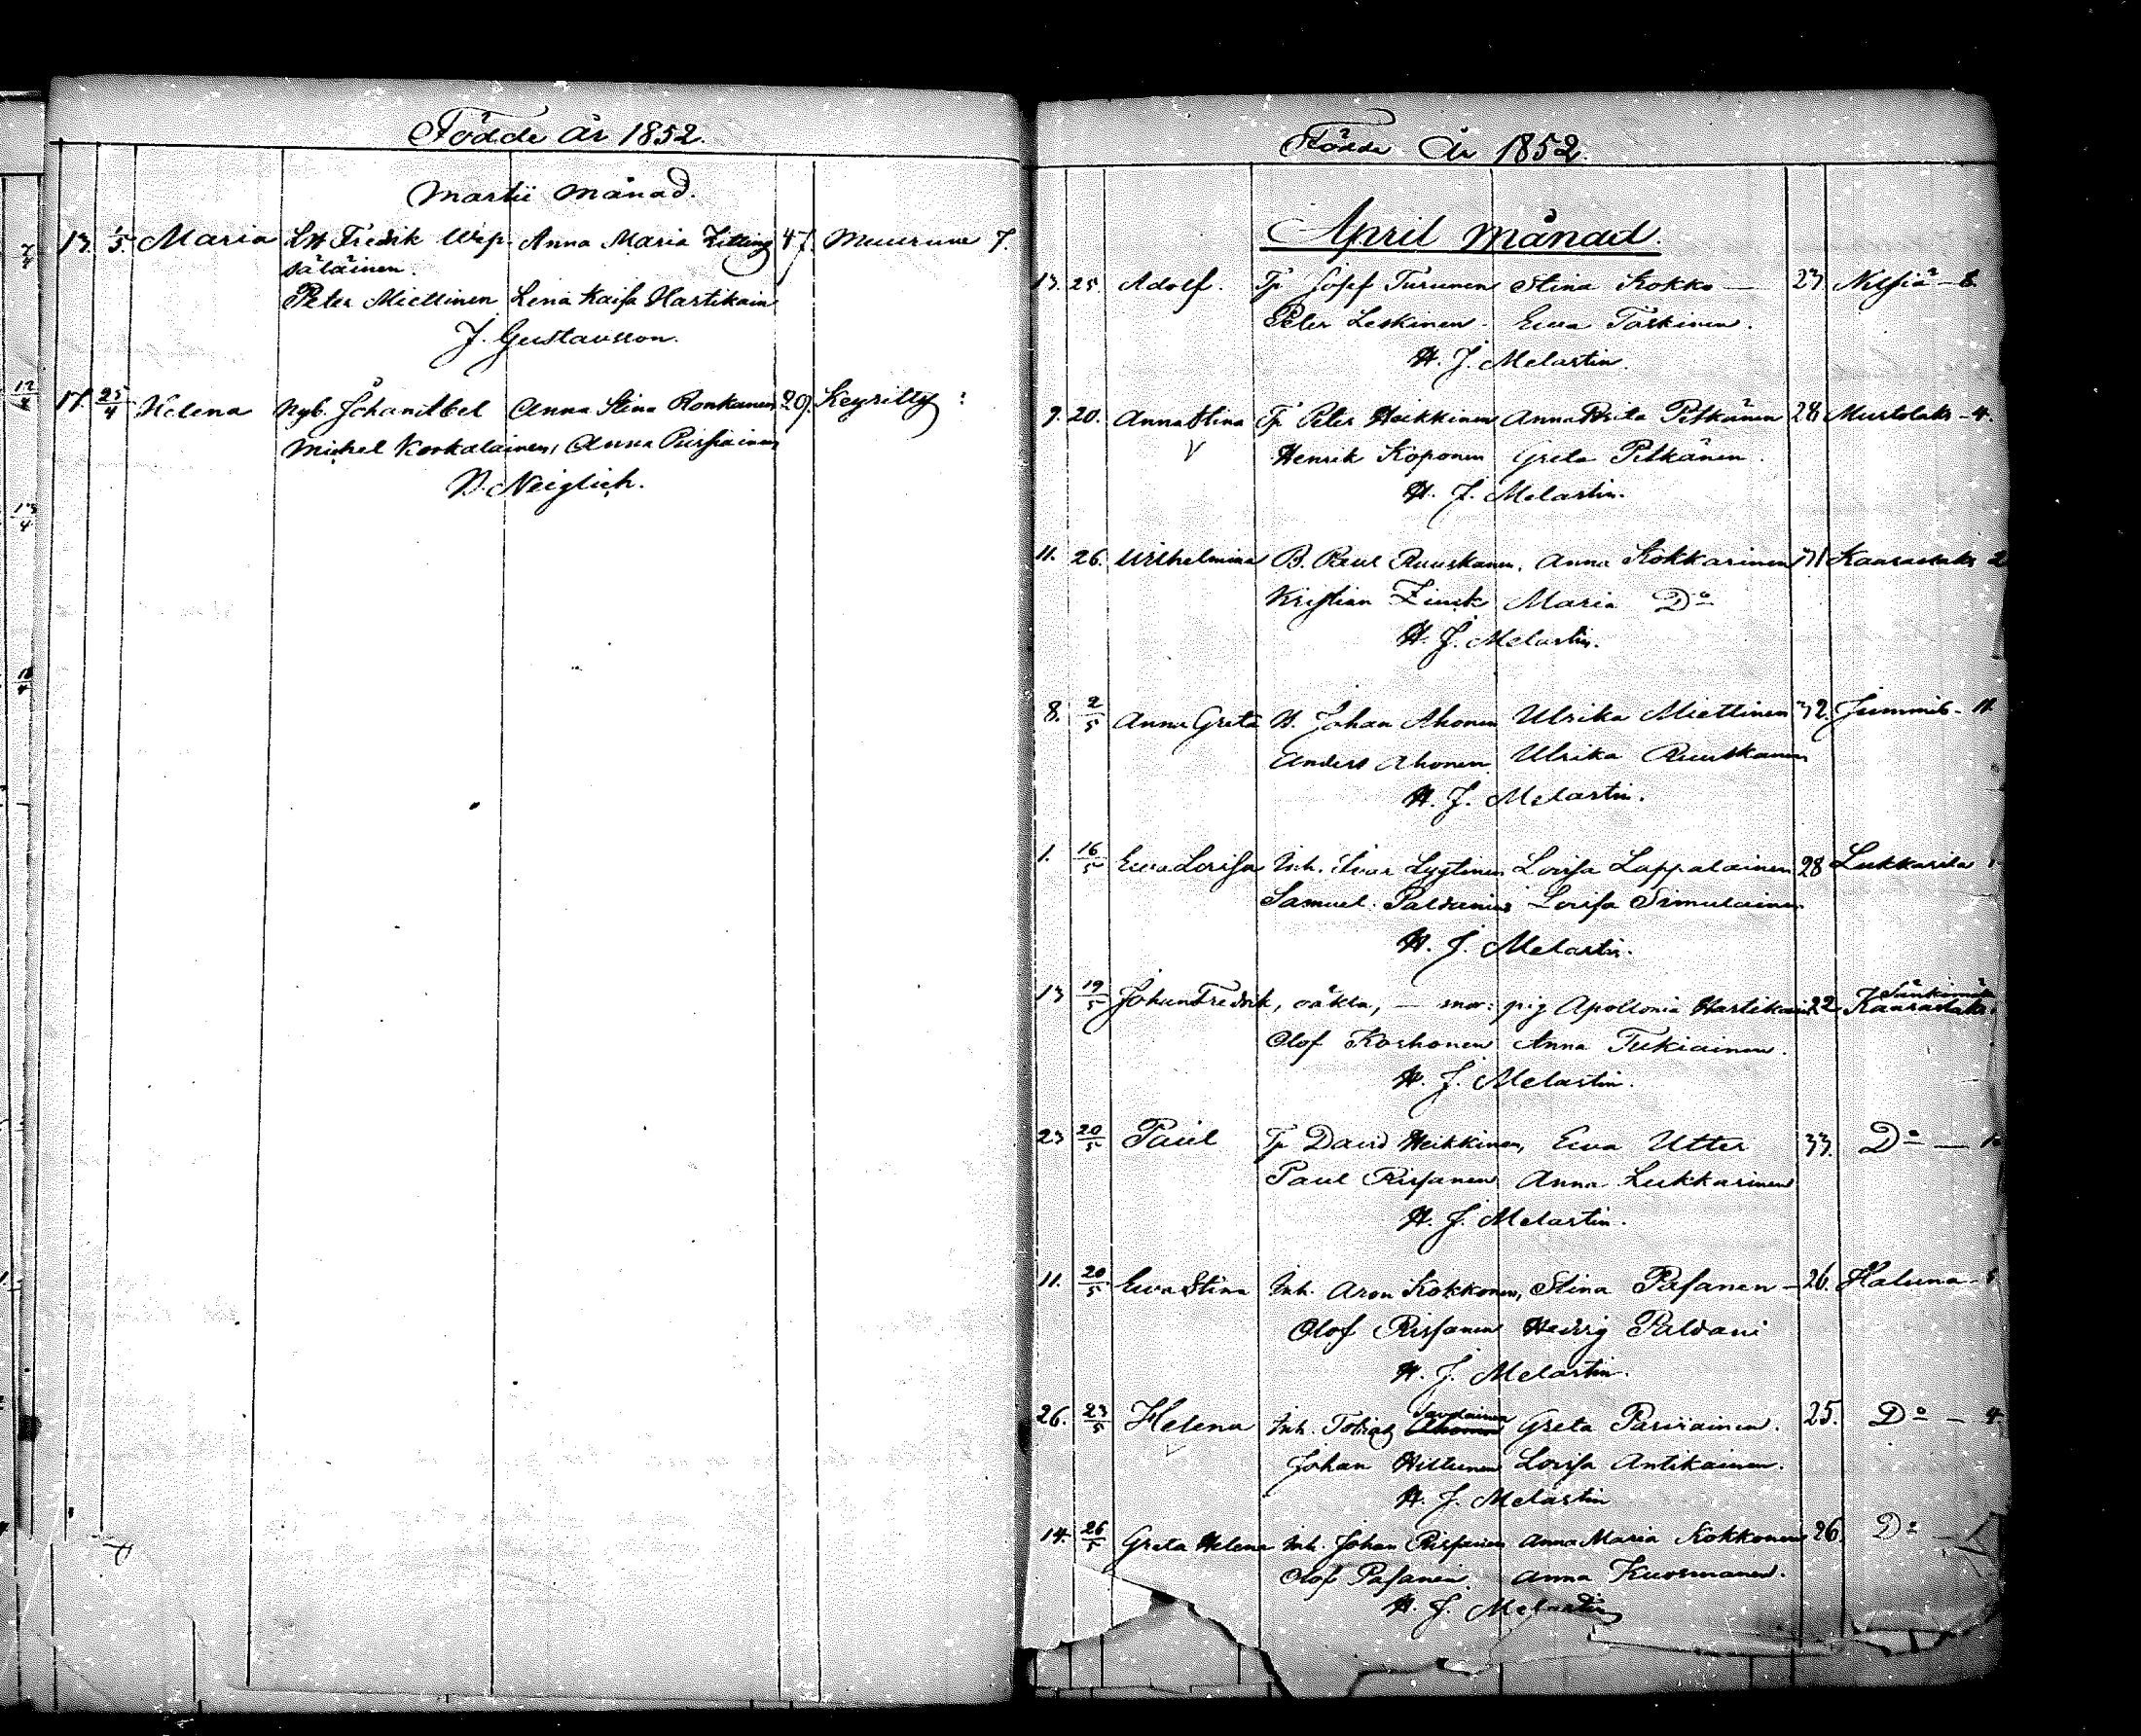 Födde år 1852.
Martii månad.
13. 1/5. Maria Lst Fredik Wep- Anna Maria Zitting 47. Muuruwe 7.
säläinen.
Peter Miettinen Lena Kaisa Hartikain
J. Gustavsson.
17. 25/4 Helena Nyb. Johan Abel Anna Stina Ronkanen 29. Keyritty
Michel Korkalainen, Anna Pursiainen
N. Neiglich.
Födde År 1852.
April månad.
13. 25. Adolf. Tp Josef Turunen Stina Kokko — 23. Nilsiä - 8.
Peter Leskinen. Ewa Toskinen.
H. J. Melartin.
7. 20. Anna Stina Tp Peter Heikkinen Anna Brita Pitkänen 28 Murtolaks - 4.
Henrik Koponen Greta Pitkänen.
H. J. Melartin.
11. 26. Wilhelmina B. Paul Ruuskanen, Anna Kokkarinen 31 Kaarastaks 2
Kristian Zinck Maria Do
H. J. Melartin.
8. 2/5 Anna Greta B. Johan Ahonen Ulrika Miettinen 32. Jummis - 11.
Anders Ahonen Ulrika Ruuskanen
H. J. Melartin.
1. 16/5 Ewa Lovisa Inh. Ivar Lyytinen Lovisa Lappalainen 28 Lukkarila 1
Samuel Paldanius Lovisa Simulainen
H. J. Melartin.
13 19/5 Johan Fredrik, oäkta, — mor: pig Apollonia Hartikain 22 Kaarastaks
Olof Korhonen Anna Tukiainen.
H. J. Melartin.
23 20/5 Paul Tp David Heikkinen, Ewa Utter 33. Do — 1.
Paul Rissanen Anna Lukkarinen
H. J. Melartin.
11. 20/5 Ewa Stina Inh. Aron Kokkonen, Stina Pasanen - 26. Haluna - 5.
Olof Rissanen Hedvig Paldani
H. J. Melartin.
26. 23/5 Helena Inh. Tobias Savolainen Greta Parviainen. 25. Do — 4.
Johan Hiltunen Lovisa Antikainen.
H. J. Melartin
14. 26/5 Greta Helena Inh. Johan Rissanen Anna Maria Kokkonen 26. Do —
Olof Pasanen. Anna Kuosmanen.
H. J. Melartin